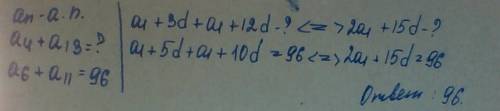 an - а.п.
a4 + a13 = ?
a6 + a11 = 96
a1 + 3d + a1 + 12d - ? <=> 2a1 + 15d - ?
a1 + 5d + a1 + 10d = 96 <=> 2a1 + 15d = 96
Ответ: 96.